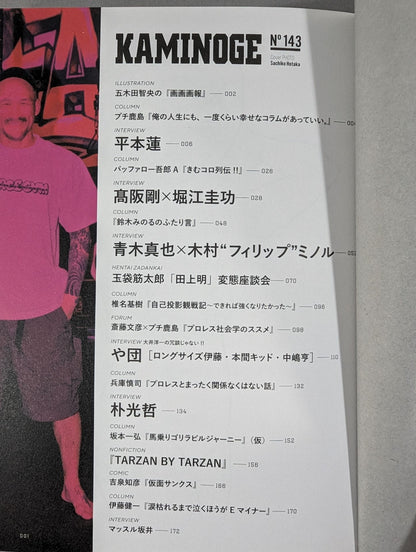 KAMINOGE Nº 143
Cover PHOTO
Sachiko Hotaka
ILLUSTRATION
五木田智央の『画画画報』 002
COLUMN
プチ鹿島『俺の人生にも、一度くらい幸せなコラムがあっていい。』 004
INTERVIEW
平本蓮 006
COLUMN
バッファロー吾郎A『きむコロ列伝!!』 026
INTERVIEW
髙阪剛×堀江圭功 028
COLUMN
『鈴木みのるのふたり言』 048
INTERVIEW
青木真也×木村“フィリップ”ミノル 052
HENTAI ZADANKAI
玉袋筋太郎「田上明」変態座談会 070
COLUMN
椎名基樹『自己投影観戦記〜できれば強くなりたかった〜』 096
FORUM
斎藤文彦×プチ鹿島『プロレス社会学のススメ』 098
INTERVIEW 大井洋一の冗談じゃない!!
や団[ロングサイズ伊藤・本間キッド・中嶋亨] 110
COLUMN
兵庫慎司『プロレスとまったく関係なくはない話』 132
INTERVIEW
朴光哲 134
COLUMN
坂本一弘『馬乗りゴリラビルジャーニー』(仮) 152
NONFICTION
『TARZAN BY TARZAN』 156
COMIC
吉泉知彦『仮面サンクス』 168
COLUMN
伊藤健一『涙枯れるまで泣くほうがEマイナー』 170
INTERVIEW
マッスル坂井 172
001